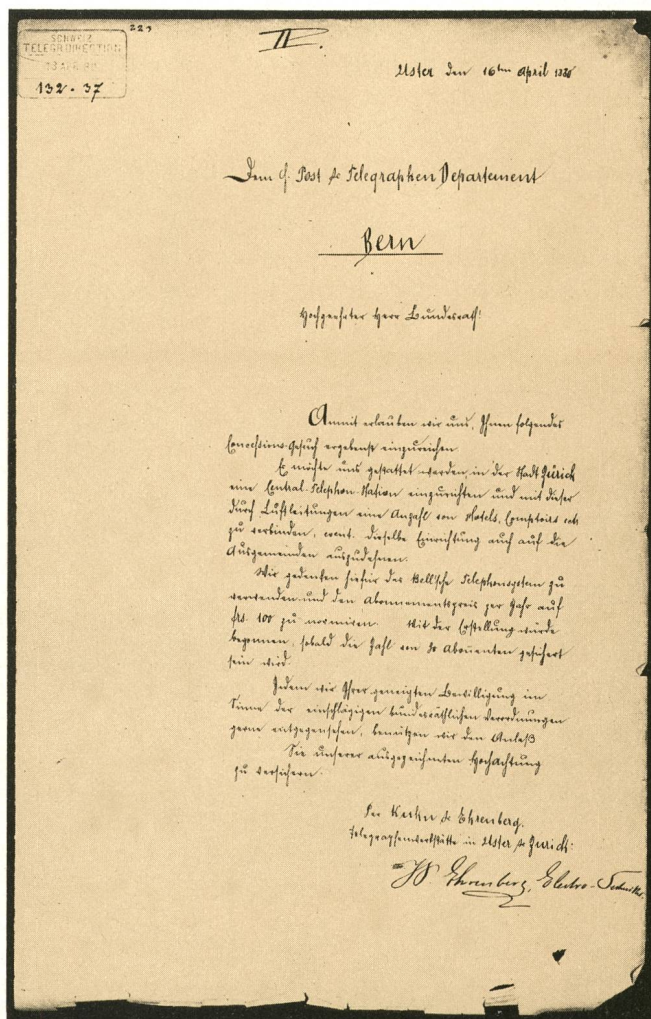 223
II.
SCHWEIZ
TELEGR.DIRECTION
18 APR. 80
132 - 37
Uster den 16ten April 1880
Dem h. Post & Telegraphen Departement
Bern
Hochgeehrter Herr Bundesrath!
Anmit erlauben wir uns, Ihnen folgendes
Concessions-Gesuch ergebenst einzureichen
Es möchte uns gestattet werden, in der Stadt Zürich
eine Central-Telephon-Station einzurichten und mit dieser
durch Luftleitungen eine Anzahl von Hotels, Comptoirs etc
zu verbinden, event. dieselbe Einrichtung auch auf die
Ausgemeinden auszudehnen.
Wir gedenken hiefür das Bell'sche Telephonsystem zu
verwenden und den Abonnementspreis per Jahr auf
frs. 100 zu normiren. Mit der Erstellung würde
begonnen, sobald die Zahl von Abonenten gesichert
sein wird
Indem wir Ihrer geneigten Bewilligung im
Sinne der einschlägigen bundesräthlichen Verordnungen
gerne entgegensehen, benützen wir den Anlaß
Sie unserer ausgezeichneten Hochachtung
zu versichern.
Per Kuhn & Ehrenberg.
Telegraphenwerkstätte in Uster & Zürich:
Ehrenberg, Electro-Techniker.